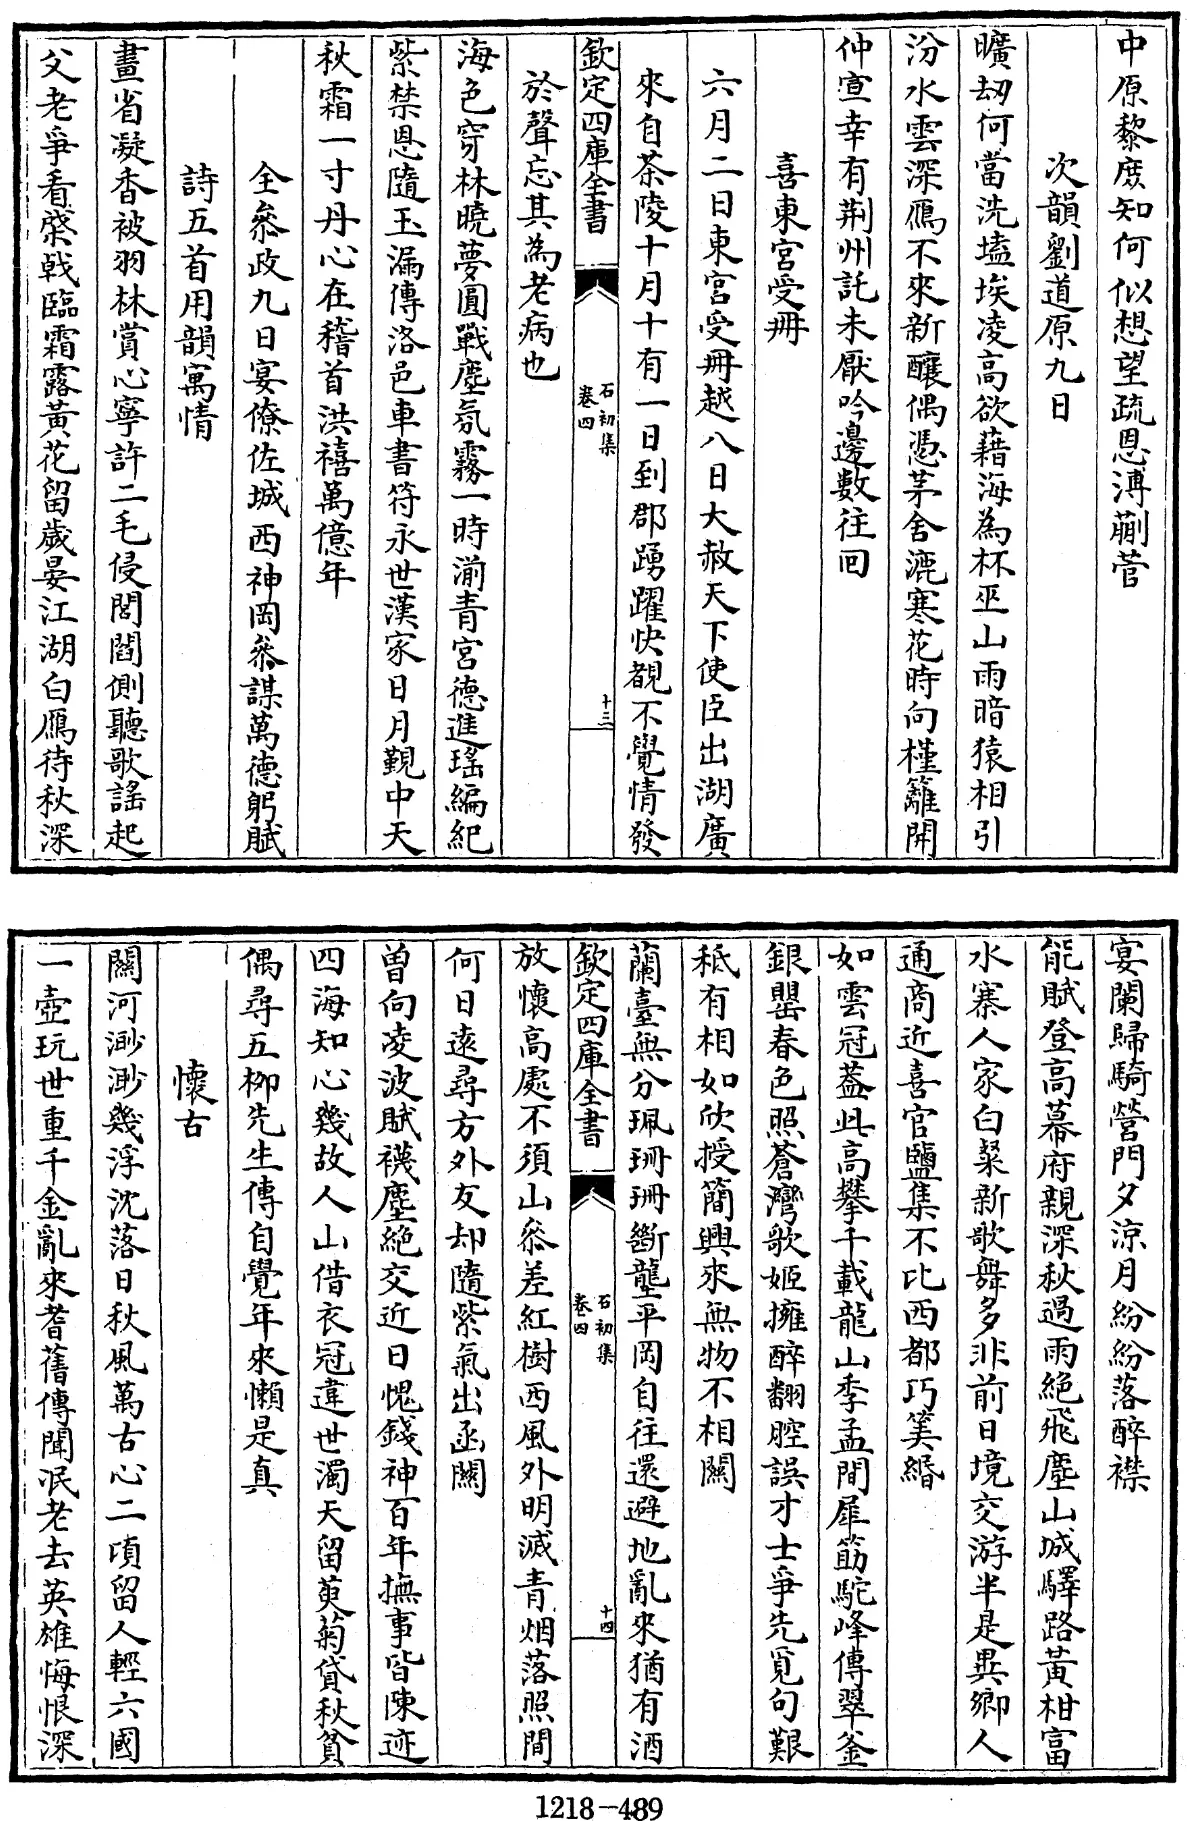 中原黎庶知何似想望疏恩溥蒯菅
次韻劉道原九日
曠劫何當洗𡏖埃凌高欲藉海為杯巫山雨暗猿相引
汾水雲深鴈不來新釀偶憑茅舍漉寒花時向槿籬開
仲宣幸有荆州託未厭吟邊數往回
喜東宮受冊
六月二日東宮受冊越八日大赦天下使臣出湖廣
來自茶陵十月十有一日到郡踴躍快覩不覺情發
於聲忘其為老病也
海色穿林曉夢圓戰塵氛霧一時湔青宮德進瑤編紀
紫禁恩隨玉漏傳洛邑車書符永世漢家日月覲中天
秋霜一寸丹心在稽首洪禧萬億年
全叅政九日宴僚佐城西神岡叅謀萬德躬賦
詩五首用韻寓情
畫省凝香被羽林賞心寧許二毛侵閭閻側聽歌謠起
父老爭看棨戟臨霜露黃花留歲晏江湖白鴈待秋深
欽定四庫全書
石初集
卷四
十三
宴闌歸騎營門夕涼月紛紛落醉襟
能賦登高幕府親深秋過雨絶飛塵山城驛路黃柑富
水寨人家白粲新歌舞多非前日境交游半是異鄉人
通商近喜官鹽集不比西都巧筭緡
如雲冠葢此高攀千載龍山季孟間犀筯駝峰傳翠釜
銀罌春色照蒼灣歌姬擁醉翻腔誤才士爭先覓句艱
秪有相如欣授簡興來無物不相關
蘭臺無分珮珊珊斷龍平岡自往還避地亂來猶有酒
放懷高處不須山叅差紅樹西風外明滅青烟落照間
何日遠尋方外友却隨紫氣出函關
曽向凌波賦襪塵絶交近日愧錢神百年撫事皆陳迹
四海知心幾故人山借衣冠違世濁天留萸菊貸秋貧
偶尋五栁先生傳自覺年來懶是真
懷古
關河渺渺幾浮沈落日秋風萬古心二頃留人輕六國
一壺玩世重千金亂來耆舊傳聞泯老去英雄悔恨深
欽定四庫全書
石初集
卷四
十四
1218-489